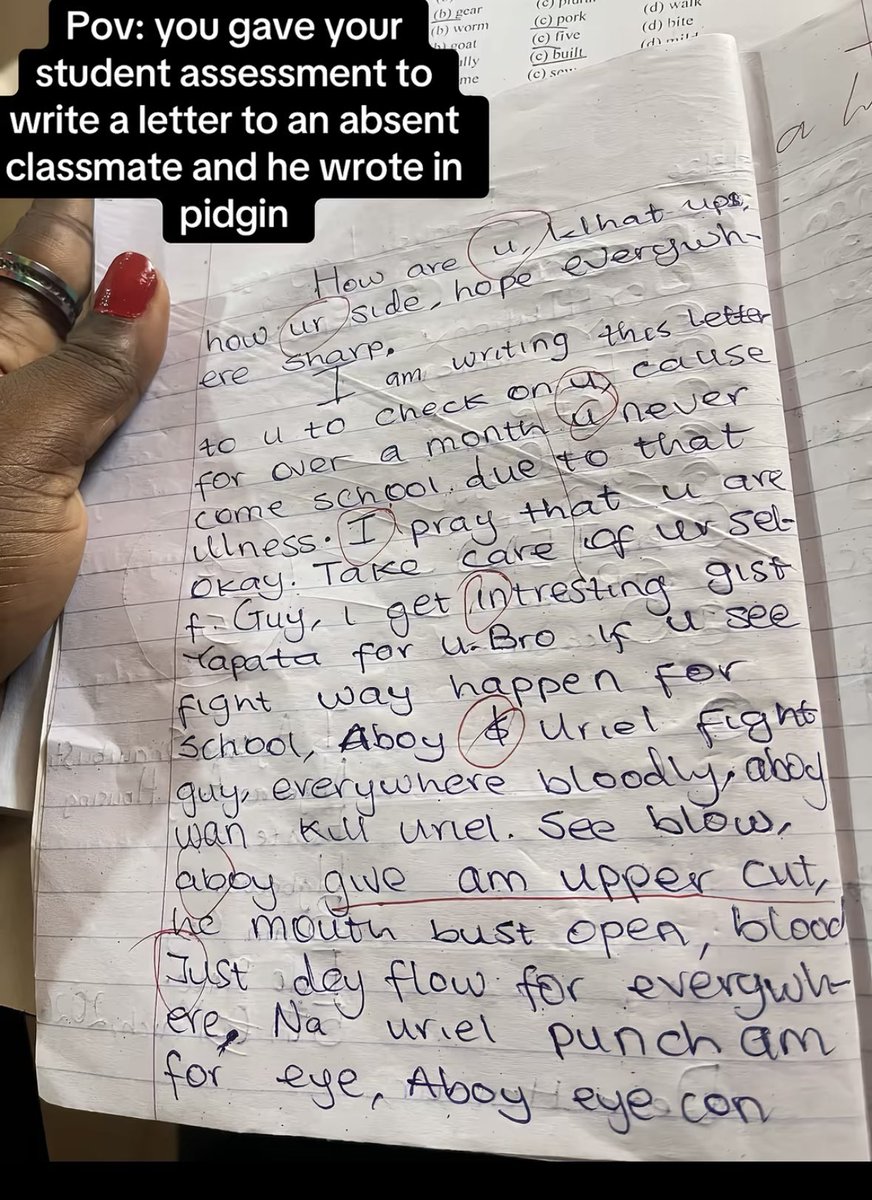 Pov: you gave your
student assessment to
write a letter to an absent
classmate and he wrote in
pidgin
(b) gear
(b) worm
(c) pork
(c) five
(c) built
(d) walk
(d) bite
How are u, What ups,
how ur side, hope everywh-
ere sharp.
I am writing this letter
to u to check on u, cause
for over a month u never
come school due to that
illness. I pray that u are
okay. Take care of ur sel-
f. Guy, I get intresting gist
tapata for u. Bro if u see
fight way happen for
school, Aboy & Uriel fight
guy, everywhere bloodly, aboy
wan kill uriel. See blow,
aboy give am upper cut,
he mouth bust open, blood
Just dey flow for everywh-
ere, Na uriel punch am
for eye, Aboy eye con